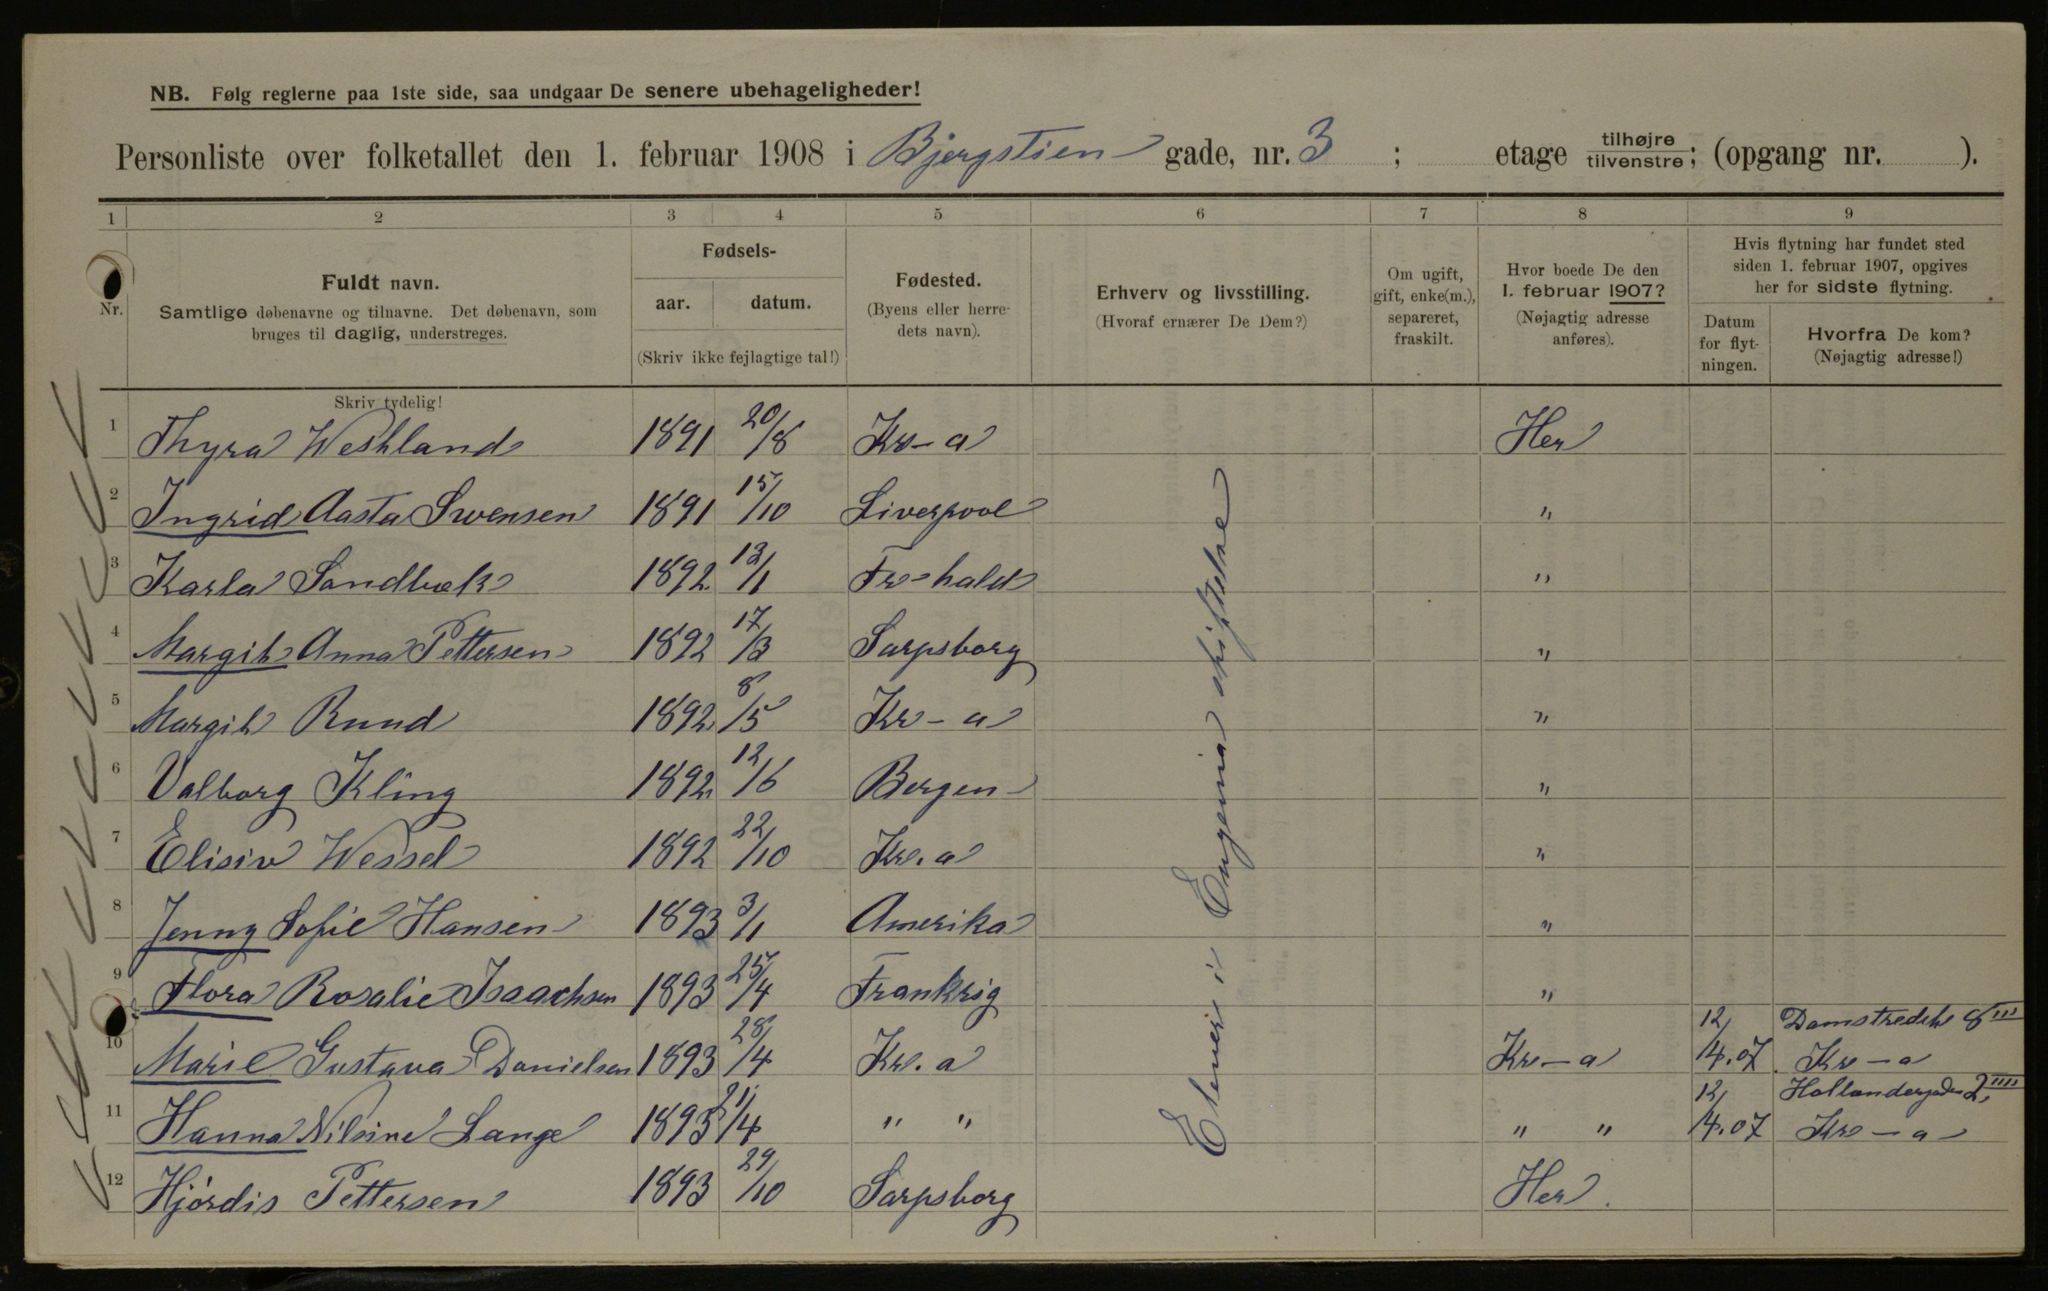 NB. Følg reglerne paa 1ste side, saa undgaar De senere ubehageligheder!
Personliste over folketallet den 1. februar 1908 i Bjergstien gade, nr. 3 ; etage tilhøjre tilvenstre; (opgang nr. ).
1 2 3 4 5 6 7 8 9
Nr.
Fuldt navn.
Samtlige døbenavne og tilnavne. Det døbenavn, som
bruges til daglig, understreges.
Fødsels-
aar. datum.
(Skriv ikke fejlagtige tal!)
Fødested.
(Byens eller herre-
dets navn).
Erhverv og livsstilling.
(Hvoraf ernærer De Dem?)
Om ugift,
gift, enke(m.),
separeret,
fraskilt.
Hvor boede De den
1. februar 1907?
(Nøjagtig adresse
anføres).
Hvis flytning har fundet sted
siden 1. februar 1907, opgives
her for sidste flytning.
Datum
for flyt-
ningen.
Hvorfra De kom?
(Nøjagtig adresse!)
Skriv tydelig!
1 Thyra Westland 1891 20/8 Kr-a Her
2 Ingrid Aasta Svensen 1891 15/10 Liverpool "
3 Karla Sandbæk 1892 13/1 Fr-hald "
4 Margit Anna Pettersen 1892 17/3 Sarpsborg "
5 Margit Ruud 1892 8/5 Kr-a "
6 Valborg Kling 1892 12/6 Bergen "
7 Elisiv Wessel 1892 22/10 Kr.a "
8 Jenny Sofie Hansen 1893 3/1 Amerika "
9 Flora Rosalie Isaachsen 1893 25/4 Frankrig "
10 Marie Gustava Danielsen 1893 28/4 Kr.a Kr-a 12/4.07. Damstredet 8 III Kr-a
11 Hanna Nilsine Lange 1893 21/4 " " " " 12/4.07 Hollandergaden 2, IIII Kr-a
12 Hjørdis Pettersen 1893 29/10 Sarpsborg Her.
Elever i Eugenia stiftelse